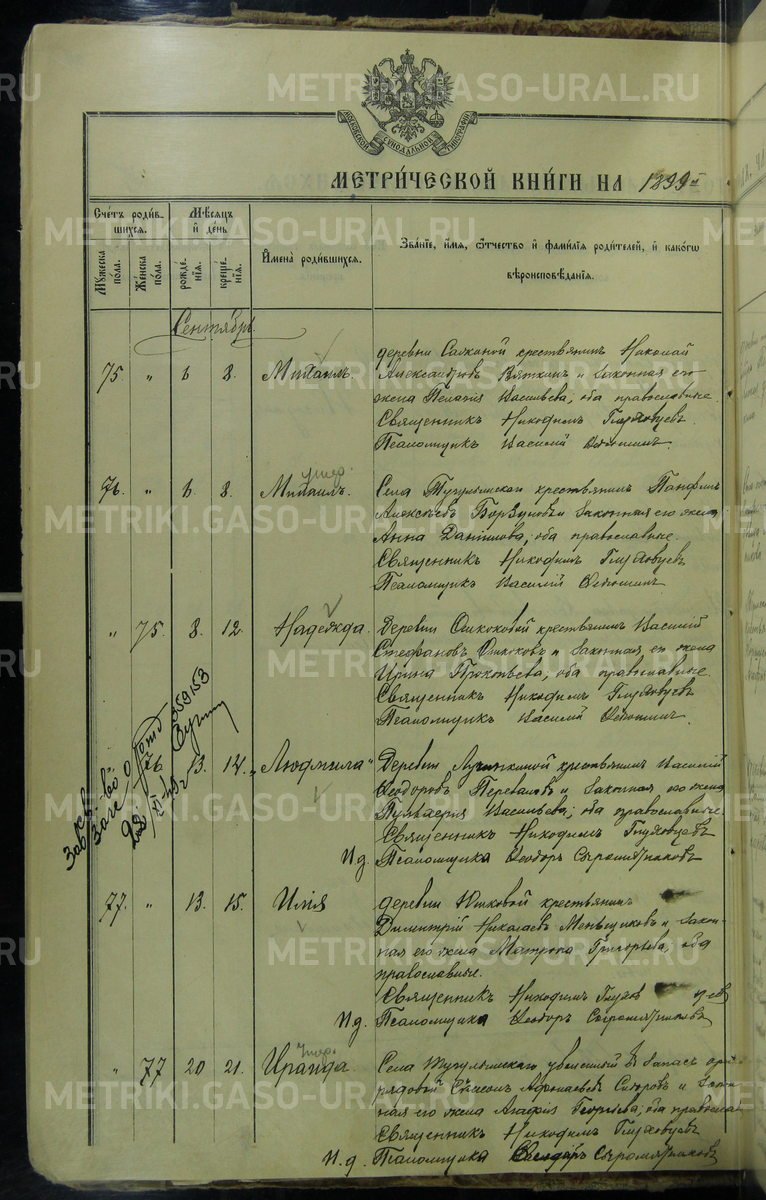 METRIKI.GASO-URAL.RU
МОСКОВСКОЙ СИНОДАЛЬНОЙ ТИПОГРАФІИ
МЕТРИ́ЧЕСКОЙ КНИ́ГИ НА 1899 г
Сче́тъ роди́вшихся.
Му́жеска по́ла.
Же́нска по́ла.
Мѣ́сяцъ и де́нь
рожде́нія.
креще́нія.
И́мена роди́вшихся.
Зва́ніе, и́мя, ѻ҆́тчество и фами́лія роди́телей, и како́гѡ вѣроисповѣ́данія.
Сентябрь
75 " 6 8. Михаилъ.
деревни крестьянинъ Николай
Александровъ Вяткинъ и законная его
жена Пелагія Васильева, оба православные.
Священникъ Никодимъ Глуховцевъ.
Псаломщикъ Василій
76. " 6 8. Михаилъ. умер.
Села Тугулымскаго крестьянинъ Панфилъ
Алексѣевъ и законная его жена
Анна Данилова, оба православные.
Священникъ Никодимъ Глуховцевъ
Псаломщикъ Василій
" 75. 8. 12. Надежда.
Деревни крестьянинъ Василій
Стефановъ и законная его жена
Ирина Прокопьева, оба православные.
Священникъ Никодимъ Глуховцевъ
Псаломщикъ Василій
76 13. 14. "Людмила"
Деревни крестьянинъ Василій
Ѳеодоровъ Переваловъ и законная его жена
Пульхерія Васильева, оба православные.
Священникъ Никодимъ Глуховцевъ
И.д. Псаломщика Ѳеодоръ Сыромятниковъ
77. " 13. 15. Илія
деревни Юшковой крестьянинъ
Димитрій Николаевъ Меньщиковъ и законная его жена Матрона Григорьева, оба
православные.
Священникъ Никодимъ Глуховцевъ
И.д. Псаломщика Ѳеодоръ Сыромятниковъ
" 77 20 21. Ираида. умер.
Села Тугулымскаго уволенный въ запасъ арміи
рядовой Аѳанасьевъ Сидоровъ и законная его жена Агафія Георгіева, оба православные
Священникъ Никодимъ Глуховцевъ
И.д. Псаломщика Ѳеодоръ Сыромятниковъ